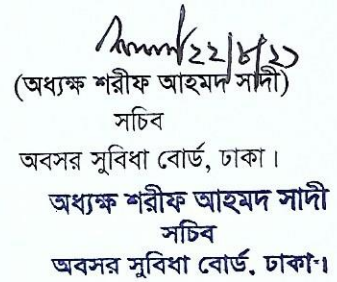 ২২/৮/২১
(অধ্যক্ষ শরীফ আহমদ সাদী)
সচিব
অবসর সুবিধা বোর্ড, ঢাকা ।
অধ্যক্ষ শরীফ আহমদ সাদী
সচিব
অবসর সুবিধা বোর্ড, ঢাকা।